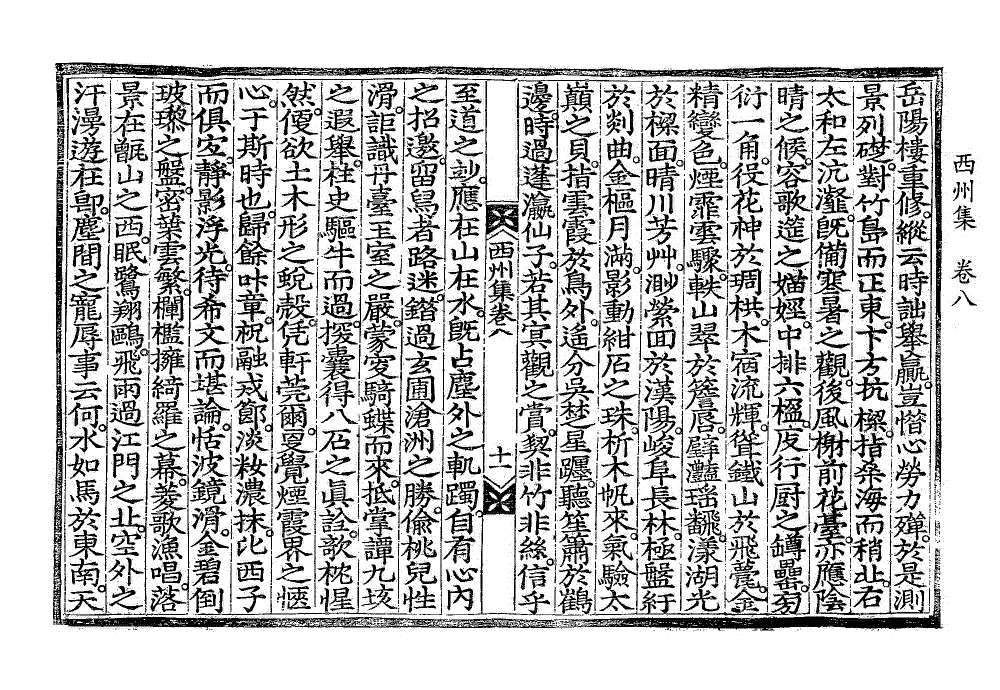 西州集　卷八
岳陽樓重修。縱云時詘擧贏。豈憯心勞力殫。於是測
景列礎。對竹島而正東。卞方抗樑。指桑海而稍北。右
太和左沆瀣。旣備寒暑之觀。後風榭前花臺。亦應陰
晴之候。容歌筵之嫺婬。中排六楹。庋行厨之罇罍。旁
衍一角。役花神於琱栱。木宿流輝。聳鐵山於飛甍。金
精變色。煙霏雲驟。軼山翠於簷唇。壁灩瑤飜。漾湖光
於樑面。晴川芳艸。渺縈回於漢陽。峻阜長林。極盤紆
於剡曲。金樞月滿。影動紺石之珠。析木帆來。氣驗太
巓之貝。指雲霞於鳥外。遙分吳楚星躔。聽笙簫於鶴
邊。時過蓬瀛仙子。若其冥觀之賞。契非竹非絲。信乎
西州集卷八
十一
至道之玅。應在山在水。旣占塵外之軌躅。自有心內
之招邀。留舃者路迷。鐕過玄圃滄洲之勝。偸桃兒性
滑。詎識丹臺玉室之嚴。蒙叟騎蝶而來。抵掌譚九垓
之遐擧。柱史驅牛而過。援囊得八石之眞詮。欹枕惺
然。便欲土木形之蛻殼。凭軒莞爾。更覺煙霞界之愜
心。于斯時也。歸餘叶章。祝融戒節。淡粧濃抹。比西子
而俱宜。靜影浮光。待希文而堪論。恬波鏡滑。金碧倒
玻瓈之盤。密葉雲繁。欄檻擁綺羅之幕。菱歌漁唱。落
景在甑山之西。眠鷺翔鷗。飛雨過江門之北。空外之
汗漫遊在卽。塵間之寵辱事云何。水如馬於東南。天